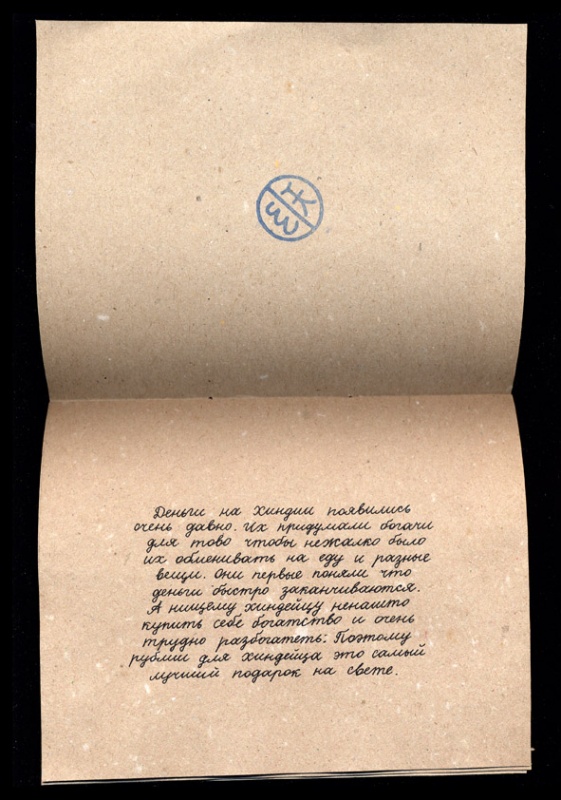 Деньги на Хиндии появились
очень давно. Их придумали богачи
для тово чтобы нежалко было
их обменивать на еду и разные
вещи. Они первые поняли что
деньги быстро заканчиваются.
А нищему хиндейцу ненашто
купить себе богатство и очень
трудно разбогатеть. Поэтому
рублии для хиндейца это самый
лучший подарок на свете.